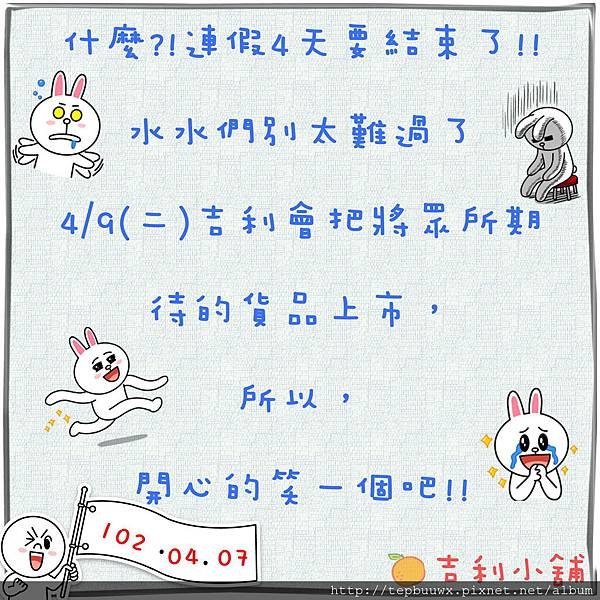 什麼?!連假4天要結束了!!
水水們別太難過了
4/9(二)吉利會把將眾所期
待的貨品上市，
所以，
開心的笑一個吧!!
102.04.07
吉利小舖
http://tepbuuwx.pixnet.net/album